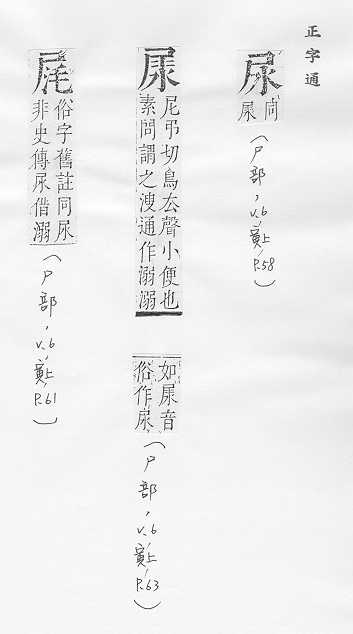 正字通
尿
同
尿
(尸部,v.6,寅上,P.58)
尿
尼弔切鳥去聲小便也
素問謂之溲通作溺溺
如尿音
俗作尿
(尸部,v.6,寅上,P.63)
俗字舊註同尿
非史傳尿借溺
(尸部,v.6,寅上,P.61)